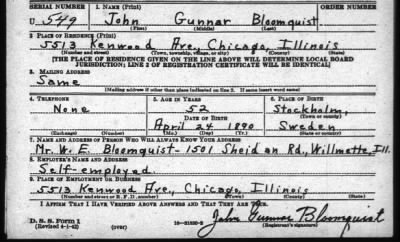 SERIAL NUMBER 1. NAME (Print) ORDER NUMBER
U. 549 John Gunnar Bloomquist
(First) (Middle) (Last)
2. PLACE OF RESIDENCE (Print)
5513 Kenwood Ave., Chicago, Illinois
(Number and street) (Town, township, village, or city) (County) (State)
[THE PLACE OF RESIDENCE GIVEN ON THE LINE ABOVE WILL DETERMINE LOCAL BOARD
JURISDICTION; LINE 2 OF REGISTRATION CERTIFICATE WILL BE IDENTICAL]
3. MAILING ADDRESS
Same
[Mailing address if other than place indicated on line 2. If same insert word same]
4. TELEPHONE 5. AGE IN YEARS 6. PLACE OF BIRTH
None 52 Stockholm,
DATE OF BIRTH (Town or county)
April 24 1890 Sweden
(Exchange) (Number) (Mo.) (Day) (Yr.) (State or country)
7. NAME AND ADDRESS OF PERSON WHO WILL ALWAYS KNOW YOUR ADDRESS
Mr. W. E. Bloomquist-1501 Sheidan Rd., Willmette, Ill.
8. EMPLOYER'S NAME AND ADDRESS
Self-employed.
9. PLACE OF EMPLOYMENT OR BUSINESS
5513 Kenwood Ave., Chicago, Illinois
(Number and street or R. F. D. number) (Town) (County) (State)
I AFFIRM THAT I HAVE VERIFIED ABOVE ANSWERS AND THAT THEY ARE TRUE.
John Gunnar Bloomquist
D. S. S. Form 1
(Revised 4-1-42) (over) (Registrant's signature)